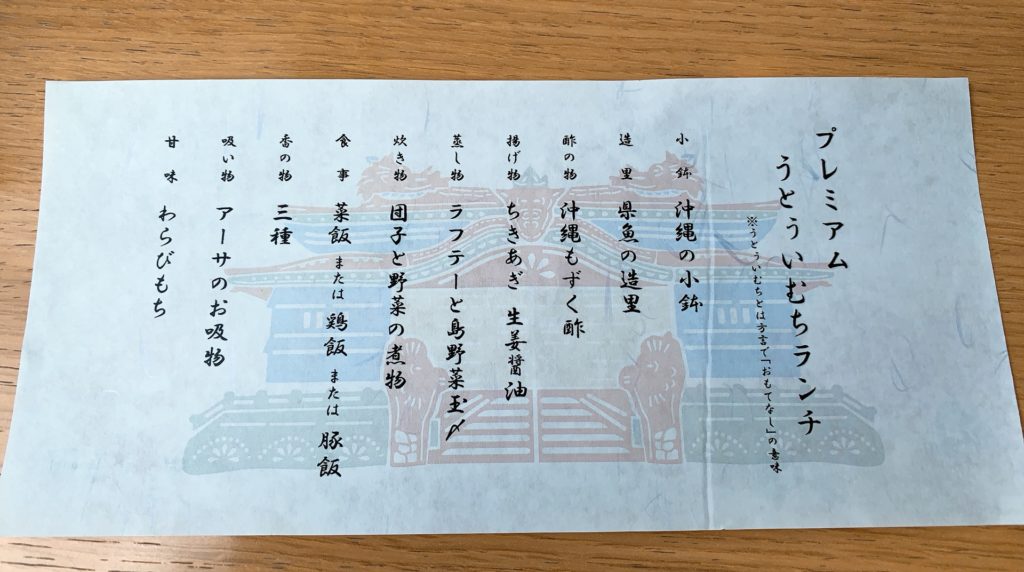 プレミアム
うとういむちランチ
※うとういむちとは方言で「おもてなし」の意味
小鉢 沖縄の小鉢
造里 県魚の造里
酢の物 沖縄もずく酢
揚げ物 ちきあぎ 生姜醤油
蒸し物 ラフテーと島野菜玉〆
炊き物 団子と野菜の煮物
食事 菜飯 または 鶏飯 または 豚飯
香の物 三種
吸い物 アーサのお吸物
甘味 わらびもち